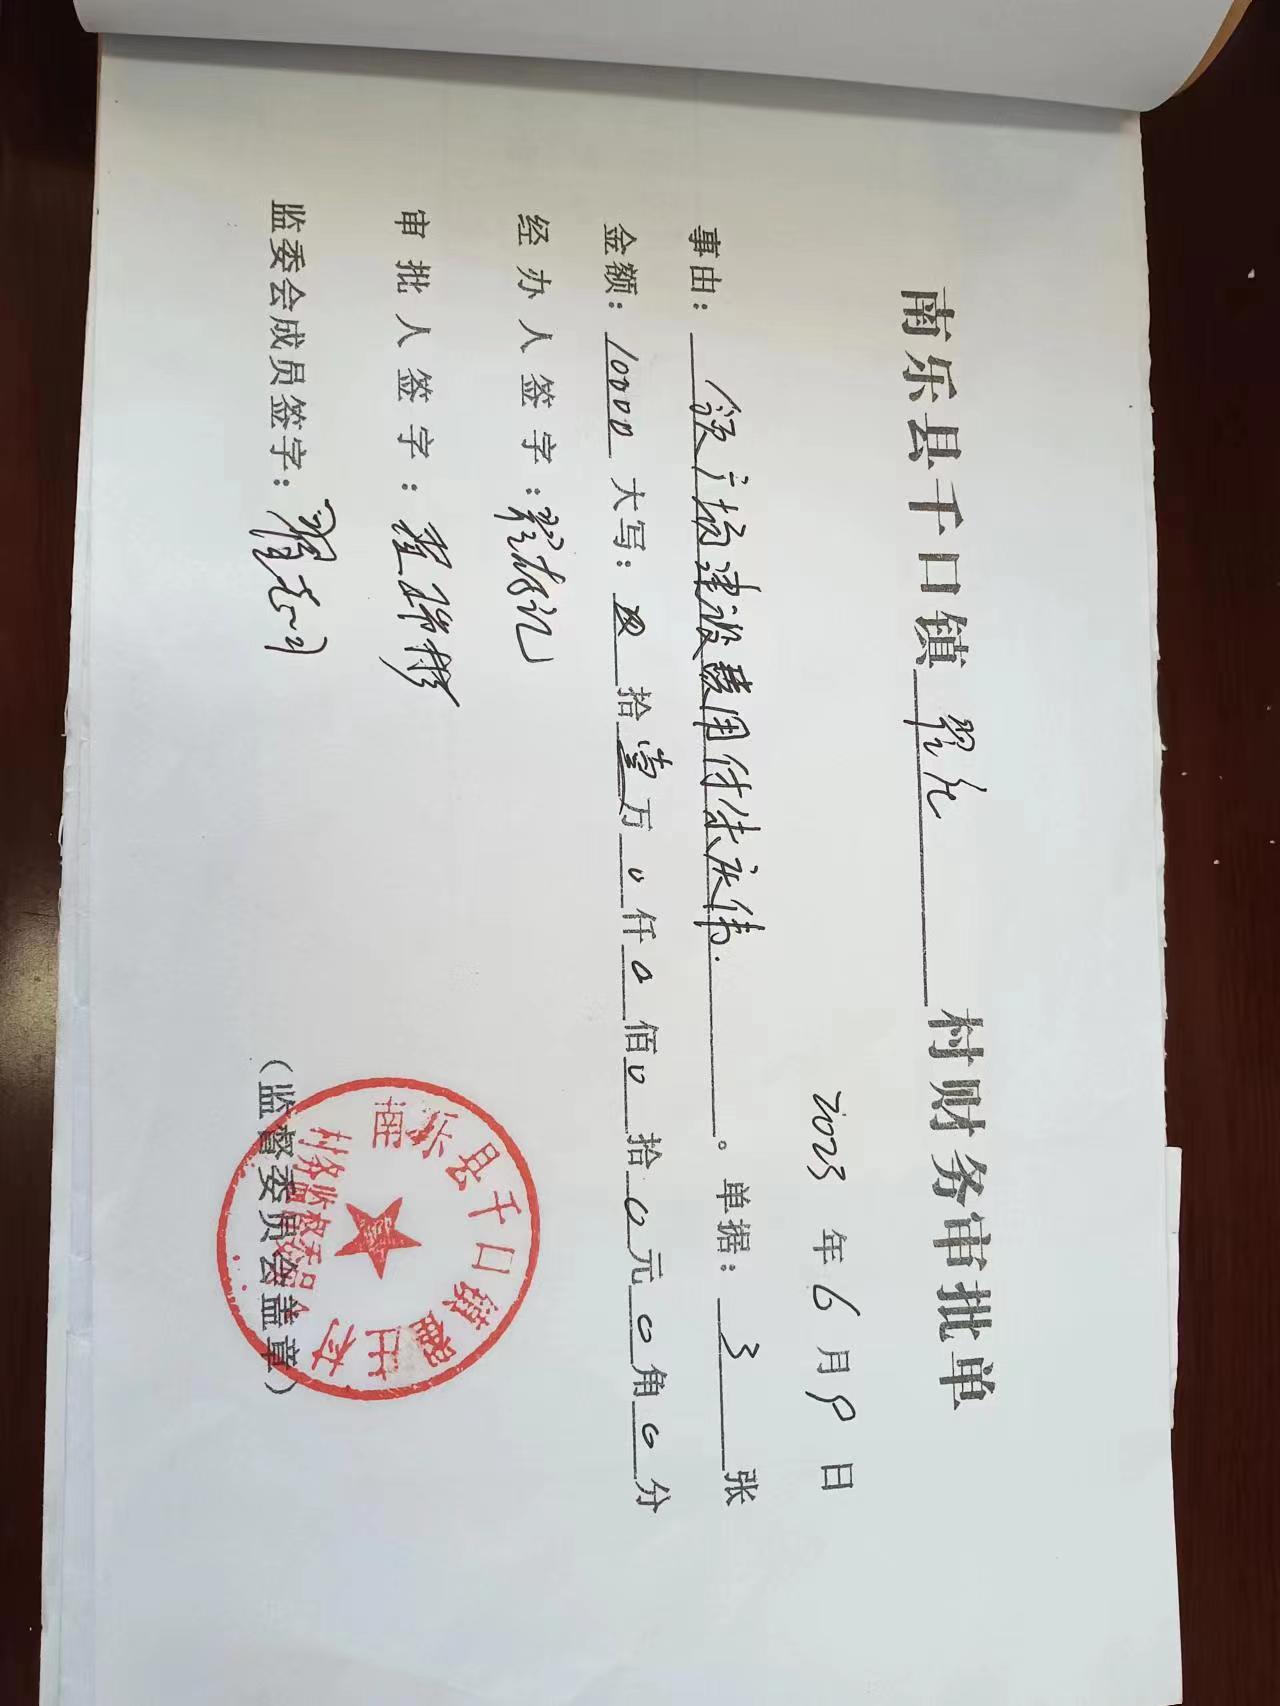 南乐县千口镇 翟庄 村财务审批单
2023 年 6 月 9 日
事由: 领广场建设费用付朱庆伟. 。单据: 3 张
金额: 10000 大写: 拾 壹 万 0 仟 0 佰 0 拾 0 元 0 角 0 分
经办人签字:
审批人签字:
监委会成员签字:
(监督委员会盖章)
南乐县千口镇翟庄村
村务监督委员会